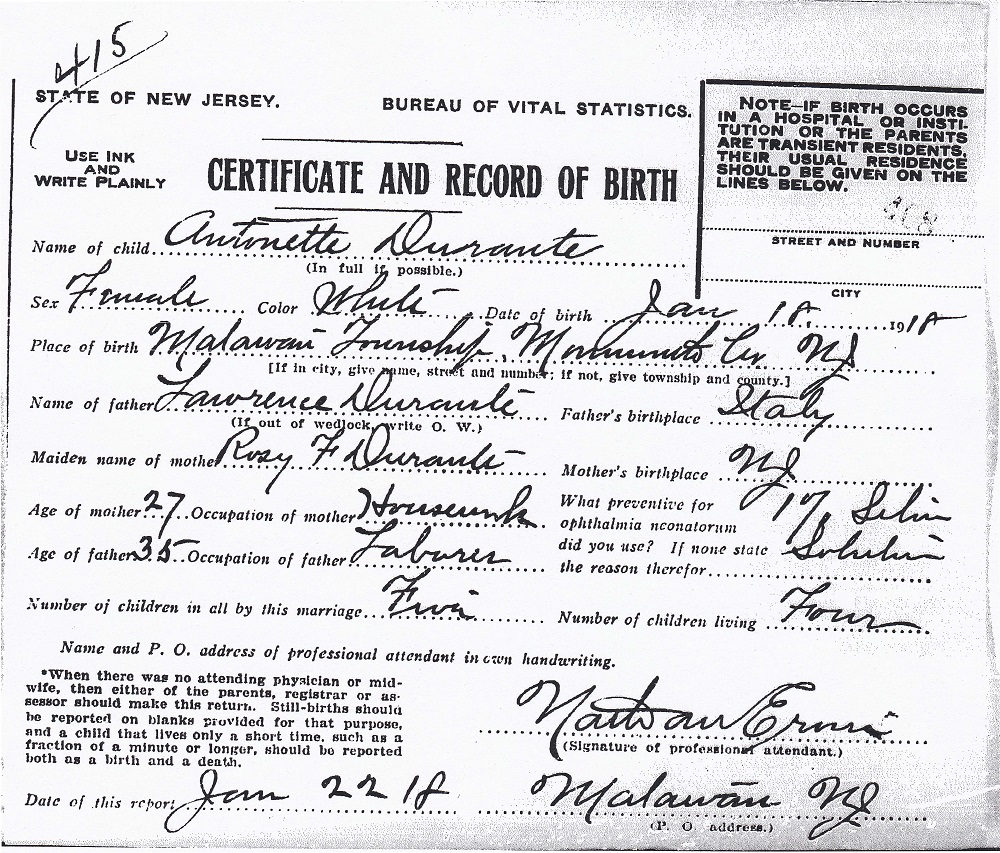 415
STATE OF NEW JERSEY. BUREAU OF VITAL STATISTICS.
NOTE—IF BIRTH OCCURS
IN A HOSPITAL OR INSTI-
TUTION OR THE PARENTS
ARE TRANSIENT RESIDENTS,
THEIR USUAL RESIDENCE
SHOULD BE GIVEN ON THE
LINES BELOW.
STREET AND NUMBER
CITY
USE INK
AND
WRITE PLAINLY
CERTIFICATE AND RECORD OF BIRTH
Name of child Antonette Durante
(In full if possible.)
Sex Female Color White Date of birth Jan 18, 1918
Place of birth Matawan Township, Monmouth Co. NJ
[If in city, give name, street and number; if not, give township and county.]
Name of father Lawrence Durante Father's birthplace Italy
(If out of wedlock, write O. W.)
Maiden name of mother Rosy F Durante Mother's birthplace NJ
Age of mother 27 Occupation of mother Housework
What preventive for 1% Silver
ophthalmia neonatorum
Age of father 35 Occupation of father Laborer
did you use? If none state Solution
the reason therefor
Number of children in all by this marriage Five Number of children living Four
Name and P. O. address of professional attendant in own handwriting.
*When there was no attending physician or mid-
wife, then either of the parents, registrar or as-
sessor should make this return. Still-births should
be reported on blanks provided for that purpose,
and a child that lives only a short time, such as a
fraction of a minute or longer, should be reported
both as a birth and a death.
Nathan
(Signature of professional attendant.)
Date of this report Jan 22 18 Matawan NJ
(P. O address.)